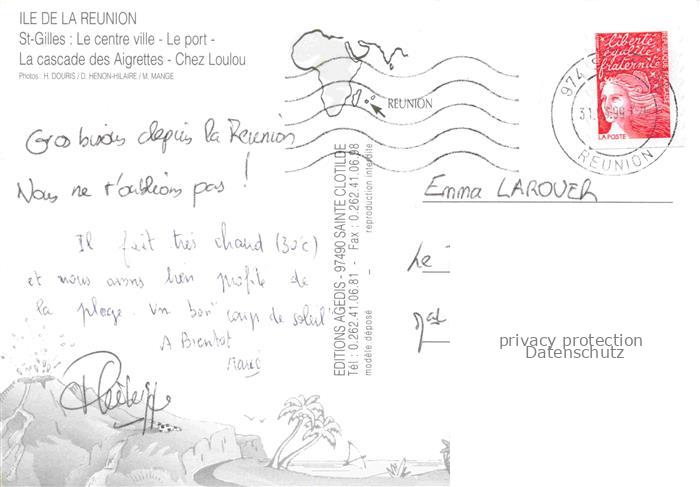 ILE DE LA REUNION
St-Gilles : Le centre ville - Le port -
La cascade des Aigrettes - Chez Loulou
Photos : H. DOURIS / D. HENON-HILAIRE / M. MANGE
REUNION
liberté
égalité
fraternité
LA POSTE
974
REUNION
Gros bisous depuis la Réunion
Nous ne t'oublions pas !
Il fait très chaud (30°c)
et nous avons bien profité de
la plage. Un bon "coup de soleil"
A Bientôt
Philippe
EDITIONS AGEDIS - 97490 SAINTE CLOTILDE
Tél : 0.262.41.06.81 - Fax : 0.262.41.06.98
modèle déposé - reproduction interdite
Emma LAROUER
Le
privacy protection
Datenschutz